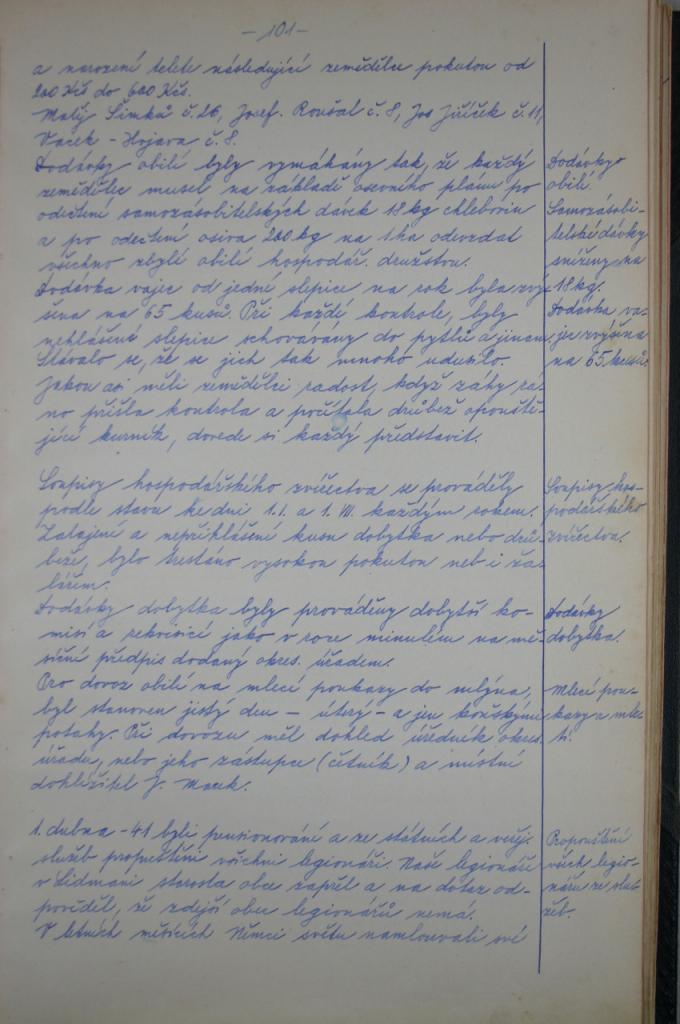 - 101 -
a narození telete následující zemědělce pokutou od
200 Kčs do 600 Kčs.
Matěj Šimků č. 26, Josef. Roušal č. 8, Jos Jiříček č. 11,
Vacek - Hojava č. 8.
Dodávky obilí byly vymáhány tak, že každý
zemědělec musel na základě osevního plánu po
odečtení samozásobitelských dávek 18 kg chlebovin
a po odečtení osiva, 200 kg na 1 ha odevzdat
všechno zbylé obilí hospodář. družstvu.
Dodávka vajec od jedné slepice na rok byla zvý-
šena na 65 kusů. Při každé kontrole, byly
nehlášené slepice schovávány do pytlů a jinam.
Stávalo se, že se jich tak mnoho udusilo.
Jakou asi měli zemědělci radost, když záhy rá-
no přišla kontrola a počítala drůbež opouště-
jící kurník, dovede si každý představit.
Soupisy hospodářského zvířectva se prováděly
podle stavu ke dni 1. I. a 1. VII. každým rokem.
Zatajení a nepřihlášení kusu dobytka nebo drů-
beže, bylo trestáno vysokou pokutou neb i ža-
lářem.
Dodávky dobytka byly prováděny dobytčí ko-
misí a rekvisicí jako v roce minulém na mě-
síční předpis dodaný okres. úřadem.
Pro dovoz obilí na mlecí poukazy do mlýna,
byl stanoven jistý den - úterý - a jen koňskými
potahy. Při dovozu měl dohled úředník okres.
úřadu, nebo jeho zástupce (četník) a místní
dohlížitel J. Marek.
1. dubna - 41 byli pensionováni a ze státních a veřej.
služeb propuštěni všichni legionáři. Naše legionáře
v Lidmani starosta obce zapřel a na dotaz od-
pověděl, že zdejší obec legionářů nemá.
V letních měsících Němci světu namlouvali své
Dodávky
obilí.
Samozásobi-
telské dávky
sníženy na
18 kg.
Dodávka va-
jec zvýšena
na 65 kusů.
Soupisy hos-
podářského
zvířectva.
Dodávky
dobytka.
Mlecí pou-
kazy a mle-
tí.
Propouštění
všech legio-
nářů ze slu-
žeb.